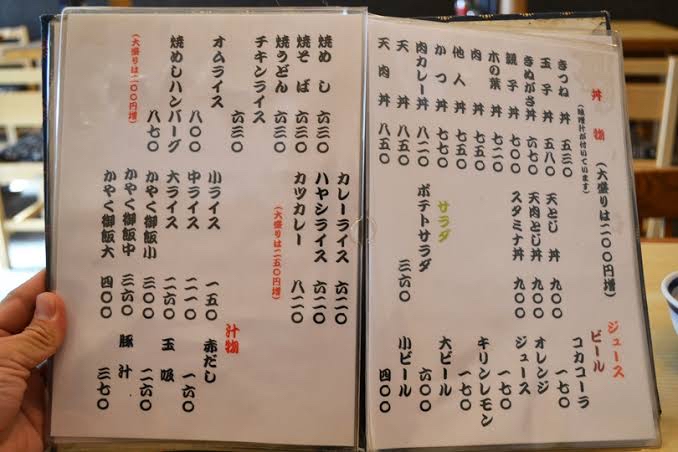 丼物（大盛りは二〇〇円増）
（味噌汁が付いています）
きつね丼 五三〇
玉子丼 五八〇
きぬがさ丼 六七〇
親子丼 七〇〇
木の葉丼 六二〇
肉丼 七五〇
他人丼 七五〇
かつ丼 七七〇
肉カレー丼 八二〇
天丼 八五〇
天肉丼 八五〇
天とじ丼 九〇〇
天肉とじ丼 九〇〇
スタミナ丼 九〇〇
サラダ
ポテトサラダ 三六〇
ジュース
ビール
コカコーラ 一七〇
オレンジジュース 一七〇
キリンレモン 一七〇
大ビール 六〇〇
小ビール 四〇〇
焼めし 六三〇
焼そば 六三〇
焼うどん 六三〇
チキンライス 六三〇
オムライス 八〇〇
焼めしハンバーグ 八七〇
（大盛りは二〇〇円増）
カレーライス 六二〇
ハヤシライス 六二〇
カツカレー 八二〇
（大盛りは二五〇円増）
小ライス 一五〇
中ライス 二一〇
大ライス 二六〇
かやく御飯小 三〇〇
かやく御飯中 三六〇
かやく御飯大 四〇〇
汁物
赤だし 一六〇
玉吸 二六〇
豚汁 三七〇